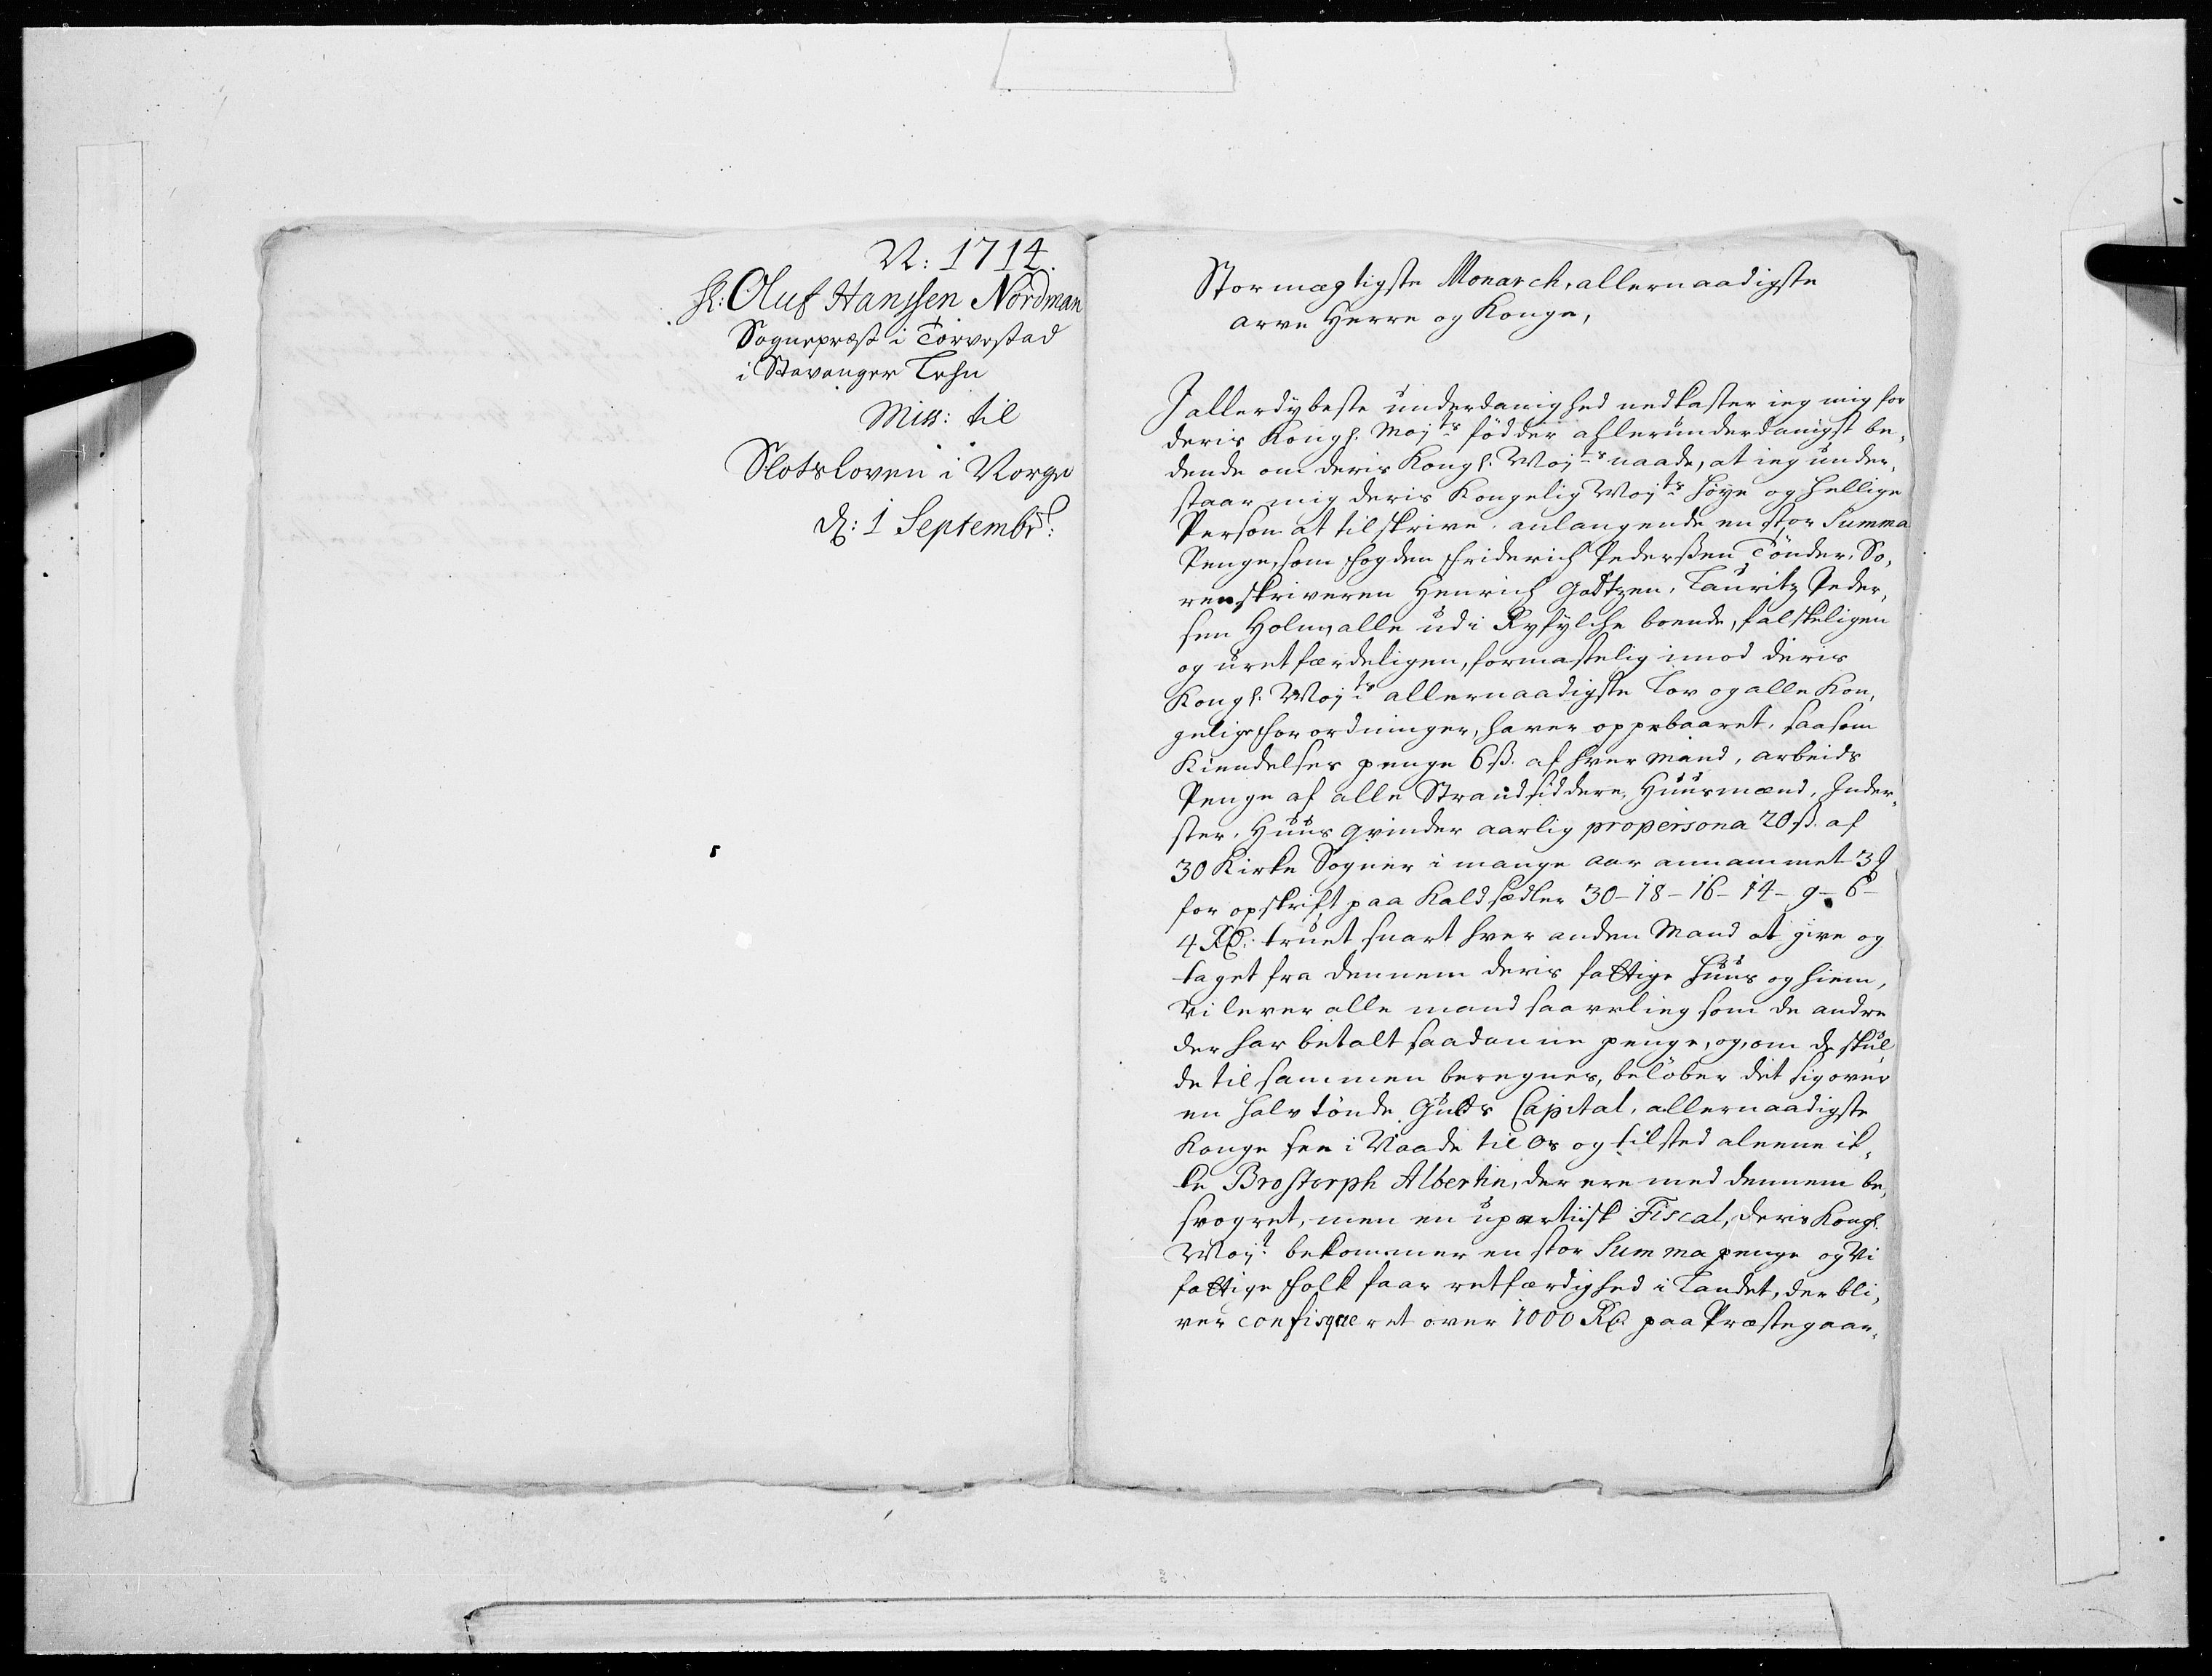 N: 1714.
H: Oluf Hanssen Nordman
Sognepræst i Torvestad
i Stavanger Lehn
Miss: til
Slotsloven i Norge
d: 1 Septembr:
Stormægtigste Monarch, allernaadigste
arve Herre og Konge,
I allerdybeste underdanighed nedkaster ieg mig for
deris Kongl. Majts födder allerunderdanigst be-
dende om deris Kongl: Majts naade, at ieg under-
staar mig deris Kongelig Majts höye og hellige
Person at tilskrive. anlangende en stor Summa
Penge, som fogden Friderich Pederssen Tönder, So-
renskriveren Henrich Gottzen, Lauritz Peder-
sen Holm, alle udi Ryfylche boende, falskeligen
og uretfærdeligen, formastelig imod deris
Kongl: Majts allernaadigste Lov og alle Kon-
gelige forordninger, haver oppebaaret, saasom
Kiendelses penge 6 ß. af hver Mand, arbeids
Penge af alle Strandsiddere, Huusmænd, Inder-
ster, Huus qvinder aarlig pro persona 20 ß. af
30 Kirke Sogner i mange aar annammet 3
for opskrift paa Kaldsedler 30-18-16-14-9-6-
4 Rd: truet snart hver anden Mand at give og
taget fra dennem deris fattige Huus og hiem,
Vi lever alle mand saa vel ieg som de andre
der har betalt saadanne penge, og, om de skul-
de til sammen beregnes, belöber det sig over
en halv tönde Guds Capital, allernaadigste
Konge see i Naade til Os og tilsted aleene ik-
ke Brostorph Albertin, der ere med dennem be-
svogret, men en upartiisk Fiscal, deris Kongl.
Majt: bekommer en stor Summa penge og Vi
fattige folk faar retfærdighed i Landet, der bli-
ver confisqueret over 1000 Rd. paa Præstegaar-